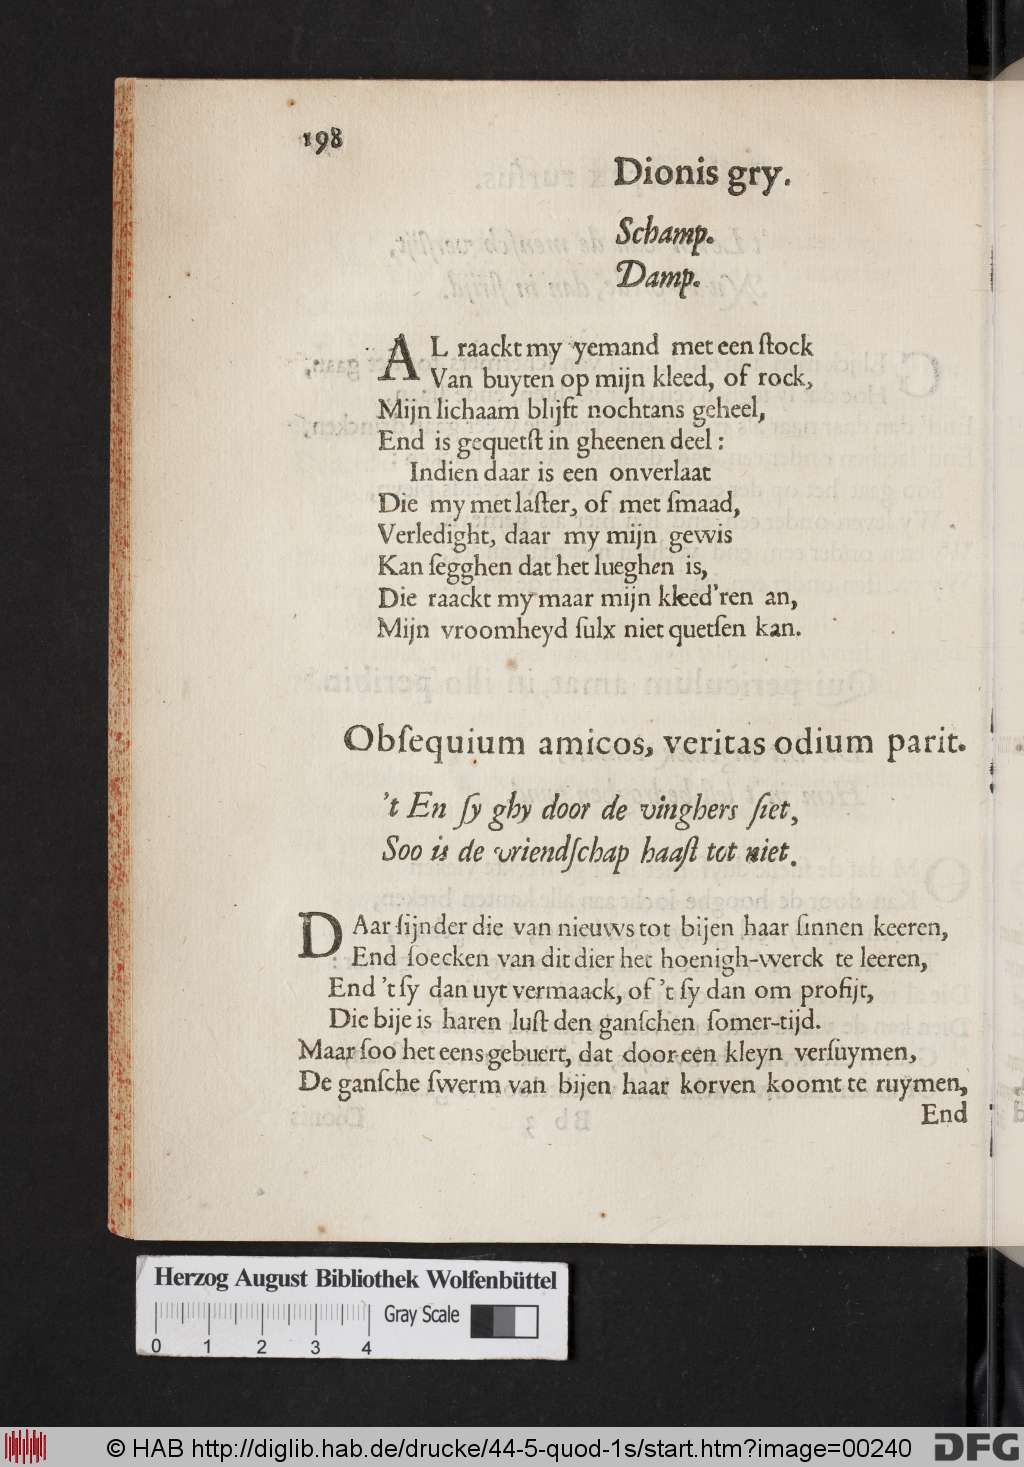 198
Dionis gry.
Schamp.
Damp.
AL raackt my yemand met een ſtock
Van buyten op mijn kleed, of rock,
Mijn lichaam blijft nochtans geheel,
End is gequetſt in gheenen deel:
Indien daar is een onverlaat
Die my met laſter, of met ſmaad,
Verledight, daar my mijn gewis
Kan ſegghen dat het lueghen is,
Die raackt my maar mijn kleed'ren an,
Mijn vroomheyd ſulx niet quetſen kan.
Obſequium amicos, veritas odium parit.
't En ſy ghy door de vinghers ſiet,
Soo is de vriendſchap haaſt tot niet.
DAar ſijnder die van nieuws tot bijen haar ſinnen keeren,
End ſoecken van dit dier het hoenigh-werck te leeren,
End 't ſy dan uyt vermaack, of 't ſy dan om profijt,
Die bije is haren luſt den ganſchen ſomer-tijd.
Maar ſoo het eens gebuert, dat door een kleyn verſuymen,
De ganſche ſwerm van bijen haar korven koomt te ruymen,
End
Herzog August Bibliothek Wolfenbüttel
Gray Scale
0 1 2 3 4
© HAB http://diglib.hab.de/drucke/44-5-quod-1s/start.htm?image=00240
DFG